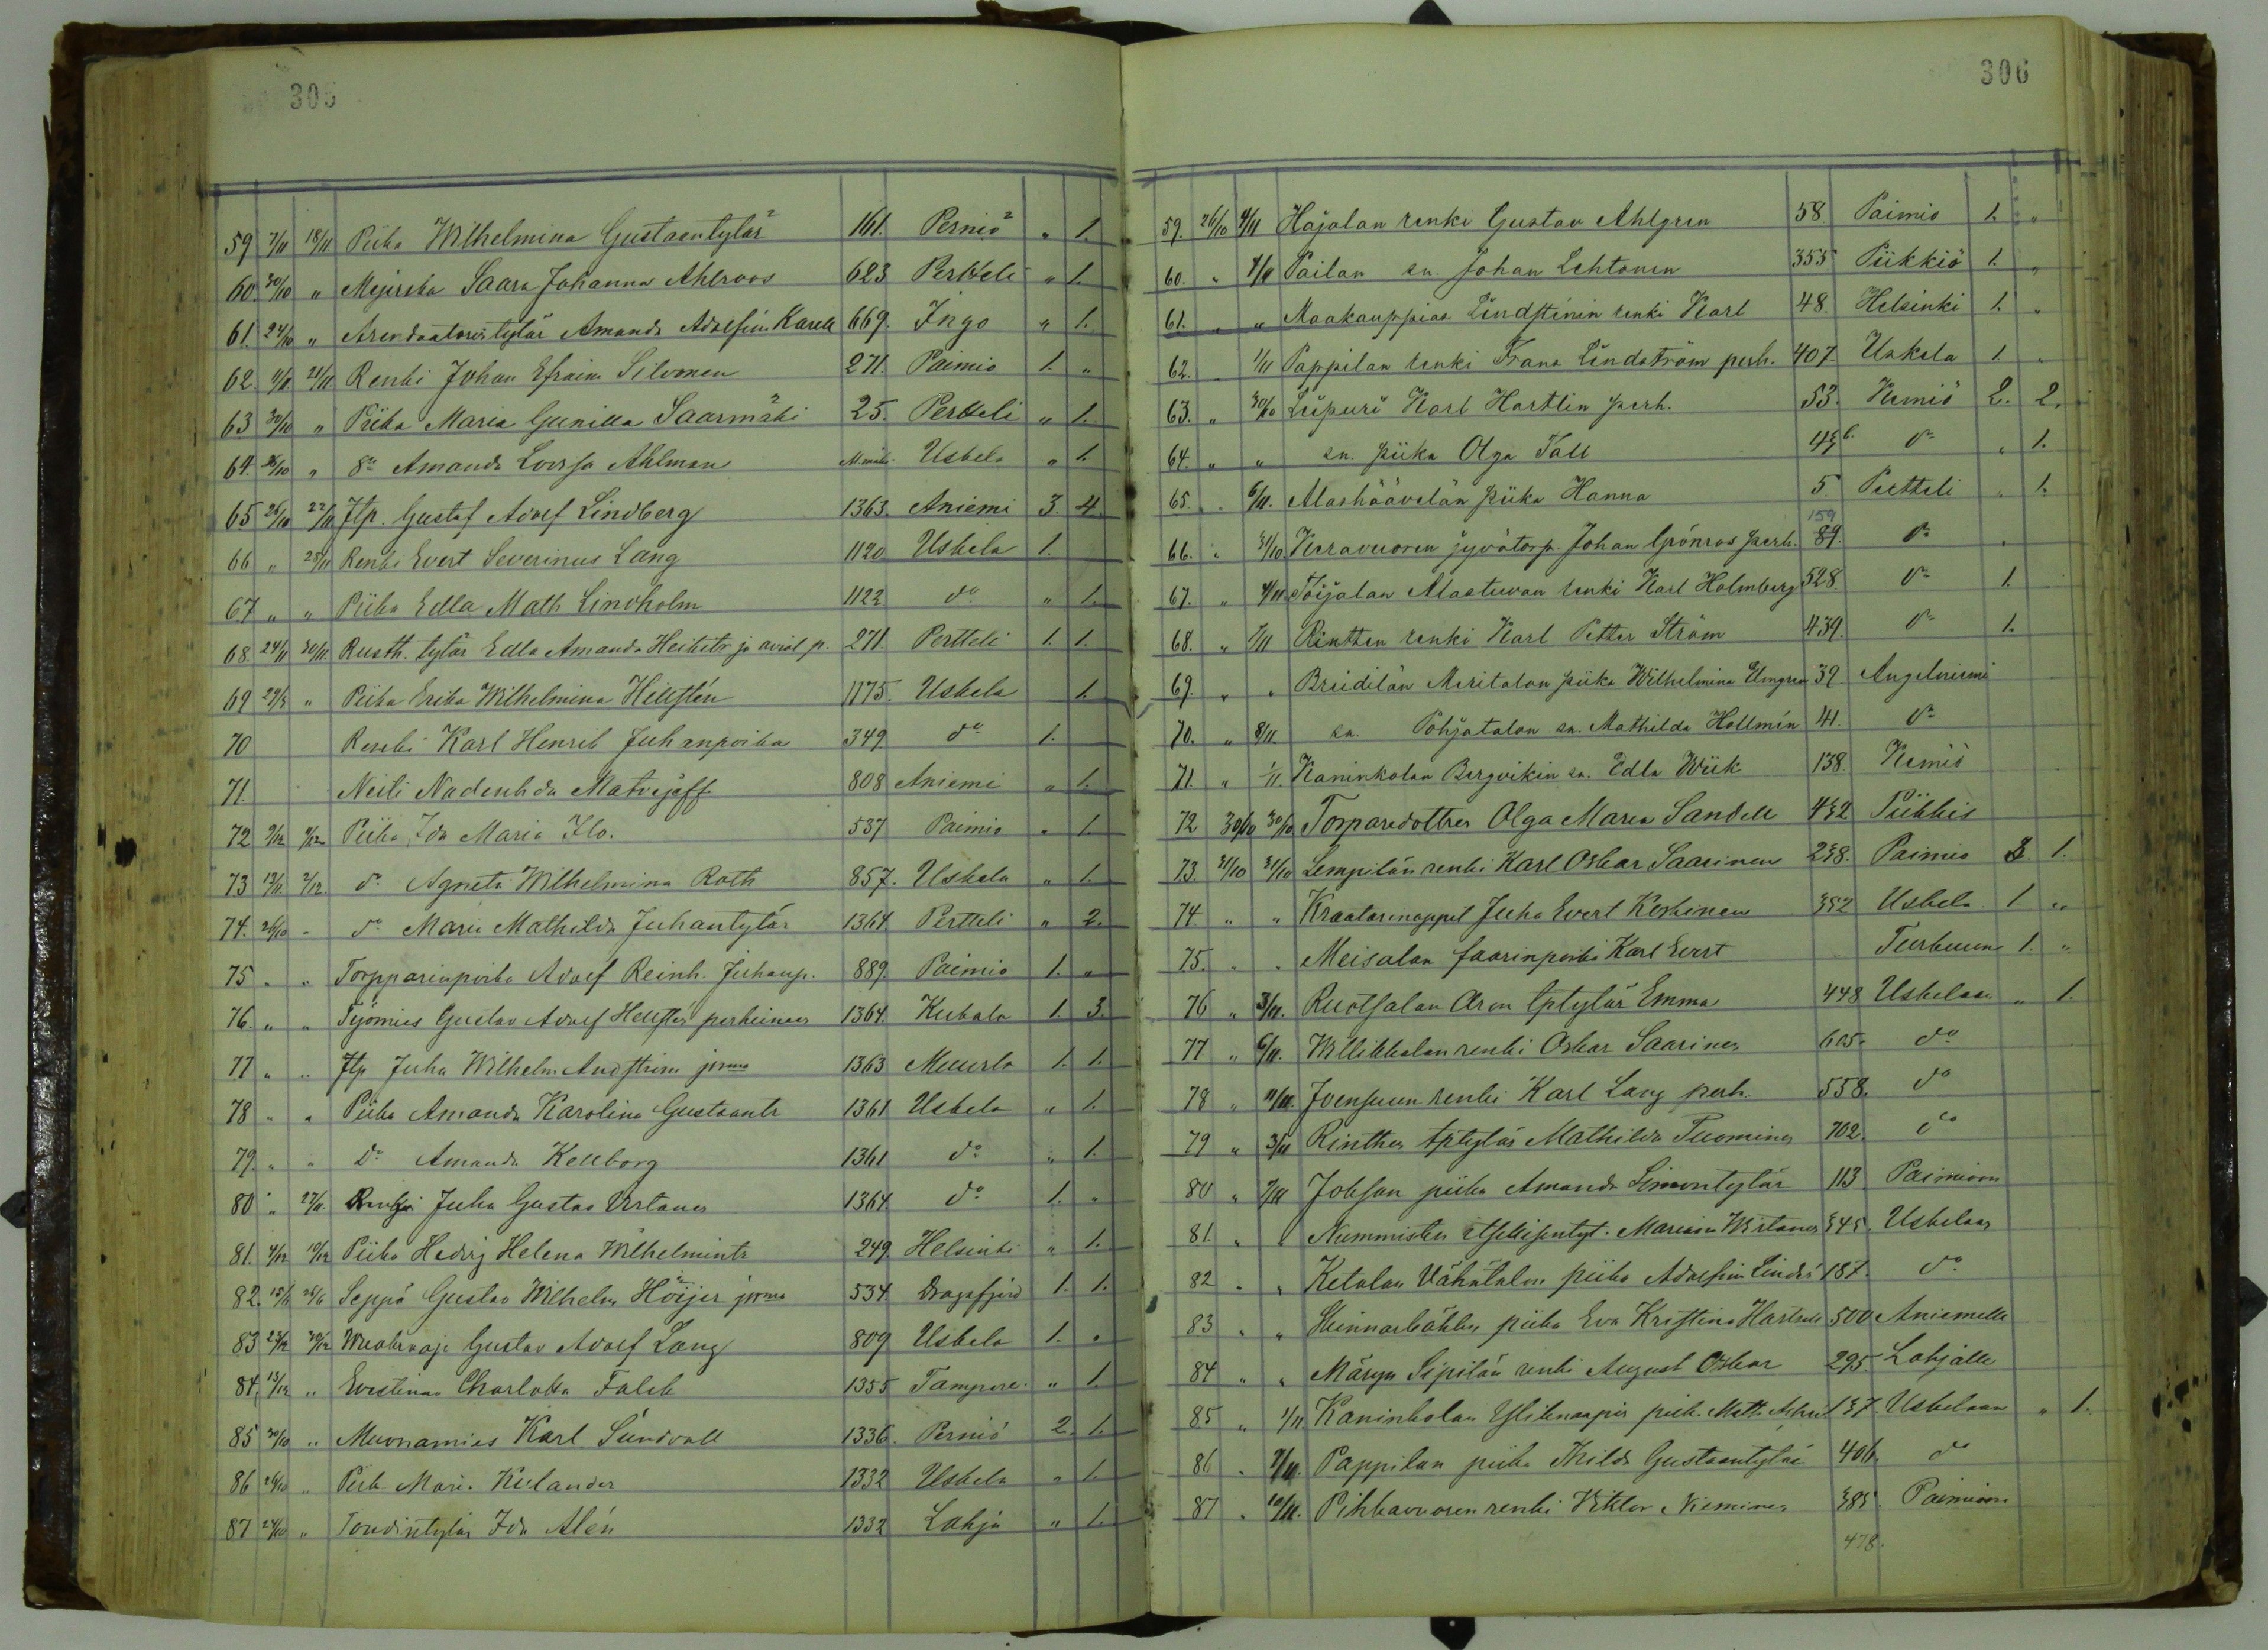 305
59 7/11 18/11 Piika Wilhelmina Gustaantytär 161. Perniö " 1.
60. 30/10 " Mejerska Saara Johanna Ahlroos 623 Pertteli " 1.
61. 24/10 " Arendaatorintytär Amanda Adolfin. Karell 669. Ingo " 1.
62. 21/11 Renki Johan Efraim Silvonen 271. Paimio 1. "
63 30/10 " Piika Maria Gunilla Saarmäki 25. Pertteli " 1.
64. 26/10 " Amanda Lovisa Ahlman Uskela " 1.
65 26/10 22/11 Itp. Gustaf Adolf Lindberg 1363. Aniemi 3. 4
66 " 25/11 Renki Evert Severinus Lang 1120 Uskela 1.
67 " " Piika Edla Math Lindholm 1122 do " 1.
68. 24/11 30/11 Rusth. tytär Edla Amanda Heikitr ja aviot p. 271. Pertteli 1. 1.
69 " Piika Erika Wilhelmina Hellstén 1175. Uskela 1.
70 Renki Karl Henrik Juhanpoika 349. do 1.
71. Neiti Nadeschda Matvejeff 808 Aniemi " 1.
72 9/12 9/12 Piika Ida Maria Ilo. 537 Paimio " 1.
73 do Agneta Wilhelmina Roth 857. Uskela " 1.
74. 26/10 - do Maria Mathilda Juhantytär 1364. Pertteli " 2.
75 " " Torpparinpoika Adolf Reinh. Juhanp. 889. Paimio 1. "
76. " " Työmies Gustav Adolf Hellstén perheineen 1364. Kuhala 1. 3.
77 " " Itp Juha Wilhelm Andström 1363 Muurla 1. 1.
78 " " Piika Amanda Karolina Gustaantr 1361 Uskela " 1.
79. " " Do Amanda Kellborg 1361 do " 1.
80 " 27/11. Renki Juha Gustav Virtanen 1364. do 1. "
81. 4/12 10/12 Piika Hedvig Helena Wilhelmintr 249. Helsinki " 1.
82. Seppä Gustav Wilhelm Höijer 534. Dragsfjerd 1. 1.
83 23/12 30/12 Gustav Adolf Lang 809 Uskela 1. "
84. 13/12 " Evelina Charlotta Falck 1355 Tampere. " 1.
85 30/10 " Muonamies Karl Sundvall 1336. Perniö 2. 1.
86 26/10 " Piik. Maria Kulander 1332 Uskela " 1.
87 24/10 " Ida Alén 1332 Lohja " 1.
306
59. 26/10 4/11 Hajalan renki Gustav Ahlgren 58 Paimio 1. "
60. " 4/11 Pailan sn. Johan Lehtonen 355 Piikkiö 1. "
61. " " Maakauppias Lindstenin renki Karl 48. Helsinki 1. "
62. 1/11 Pappilan renki Frans Lindström perh. 407 Uskela 1. "
63. " 30/10 Läpuri Karl Hartlin perh. 53. Kemiö 2. 2.
64. " " sn. piika Olga Tall do " 1.
65. " 6/11. Alashäävelän piika Hanna 5. Pertteli " 1.
159
66. " 31/10 Keravuoren jyvätorp. Johan Grönros perh. 89. do "
67. " 4/11 Töijalan Alastuvan renki Karl Holmberg 528. do 1.
68. " 7/11 Rintten renki Karl Petter Ström 439. do 1.
69. " " Breidilän Meritalon piika Wilhelmina Elmgren 39 Angelniemi
70. " 8/11. sn. Pohjatalon sn. Mathilda Hollmén 41. do
71. " 1/11. Kaninkolan Bergvikin sn. Edla Wiik 138. Kemiö
72 30/10 30/10 Torparedotter Olga Maria Sandell 432 Piikkis
73. 31/10 31/10 Lempilän renki Karl Oskar Saarinen 238. Paimio 3. 1.
74 " " Kraatarinoppil Juha Evert Koskinen 352 Uskela 1 "
75. " " Meisalan saarinpoika Karl Evert Turkuun 1. "
76 " 3/11. Ruotsalan Aron tptytär Emma 448 Uskelaan " 1.
77 " 6/11. Villikkalan renki Oskar Saarinen 605. do
78 " 11/11. Joensuun renki Karl Lang perh. 558. do
79 " 3/11 Rinthen tptytär Mathilda Tuominen 702. do
80 " 7/11 Johson piika Amanda Simontytär 113 Paimioon
81. " " Nummisten itsellisentyt. Maria Virtanen 345. Uskelaan
82 " " Ketolan Vähätalon piika Adolfin Lindr 187. do
83 " " piika Eva Kristina Hartvall 500 Aniemelle
84 " " Märyn Sipilän renki August Oskar 295. Lohjalle
85 " 1/11. Kaninkolan Yliknaapin piik. Math. 137. Uskelaan " 1.
86 " 7/11. Pappilan piika Hilda Gustaantytär 406. do
87 " 10/11. Pihkavuoren renki Viktor Nieminen 385. Paimioon
478.